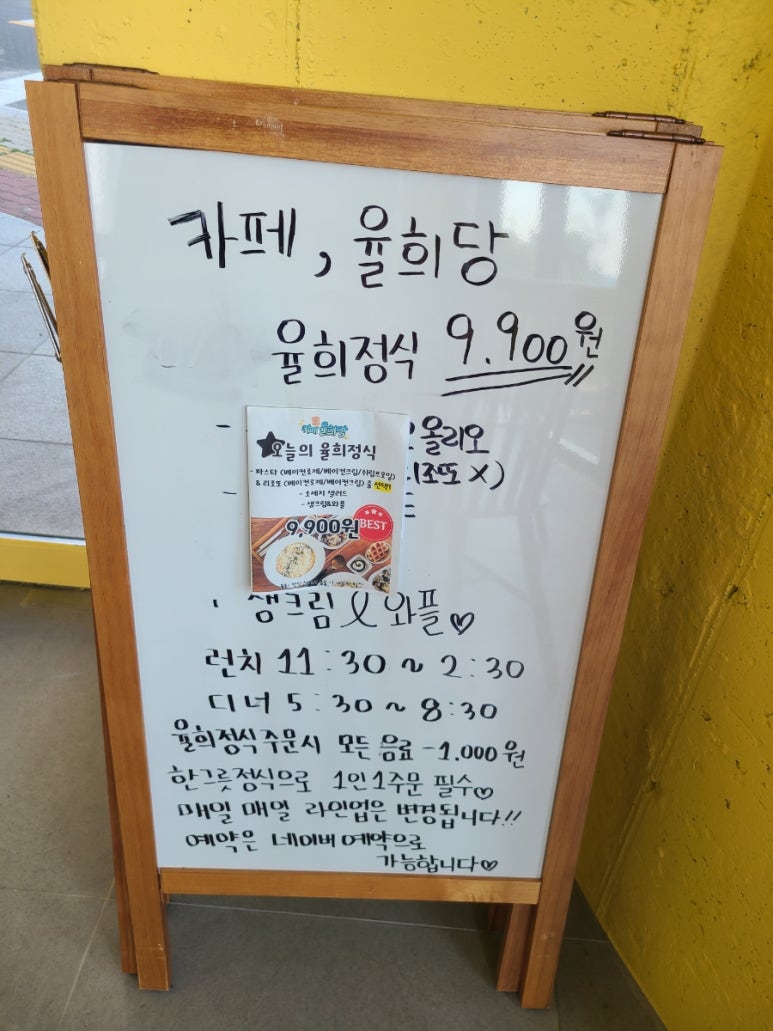 카페, 율희당
율희정식 9.900원
올리오
X)
카페 율희당
오늘의 율희정식
- 파스타 (베이컨로제/베이컨크림/쉬림프오일)
& 리조또 (베이컨로제/베이컨크림) 중 선택1
- 소세지 샐러드
- 생크림&와플
9,900원
BEST
생크림 & 와플♡
런치 11:30 ~ 2:30
디너 5:30 ~ 8:30
율희정식 주문시 모든 음료 -1.000원
한그릇정식으로 1인 1주문 필수♡
매일 매일 라인업은 변경됩니다!!
예약은 네이버 예약으로
가능합니다♡